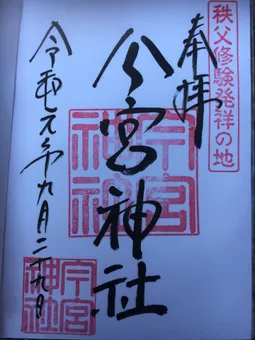 秩父修験発祥の地
奉拝
今宮神社
今宮
神社
令和元年九月二十九日
今宮
神社